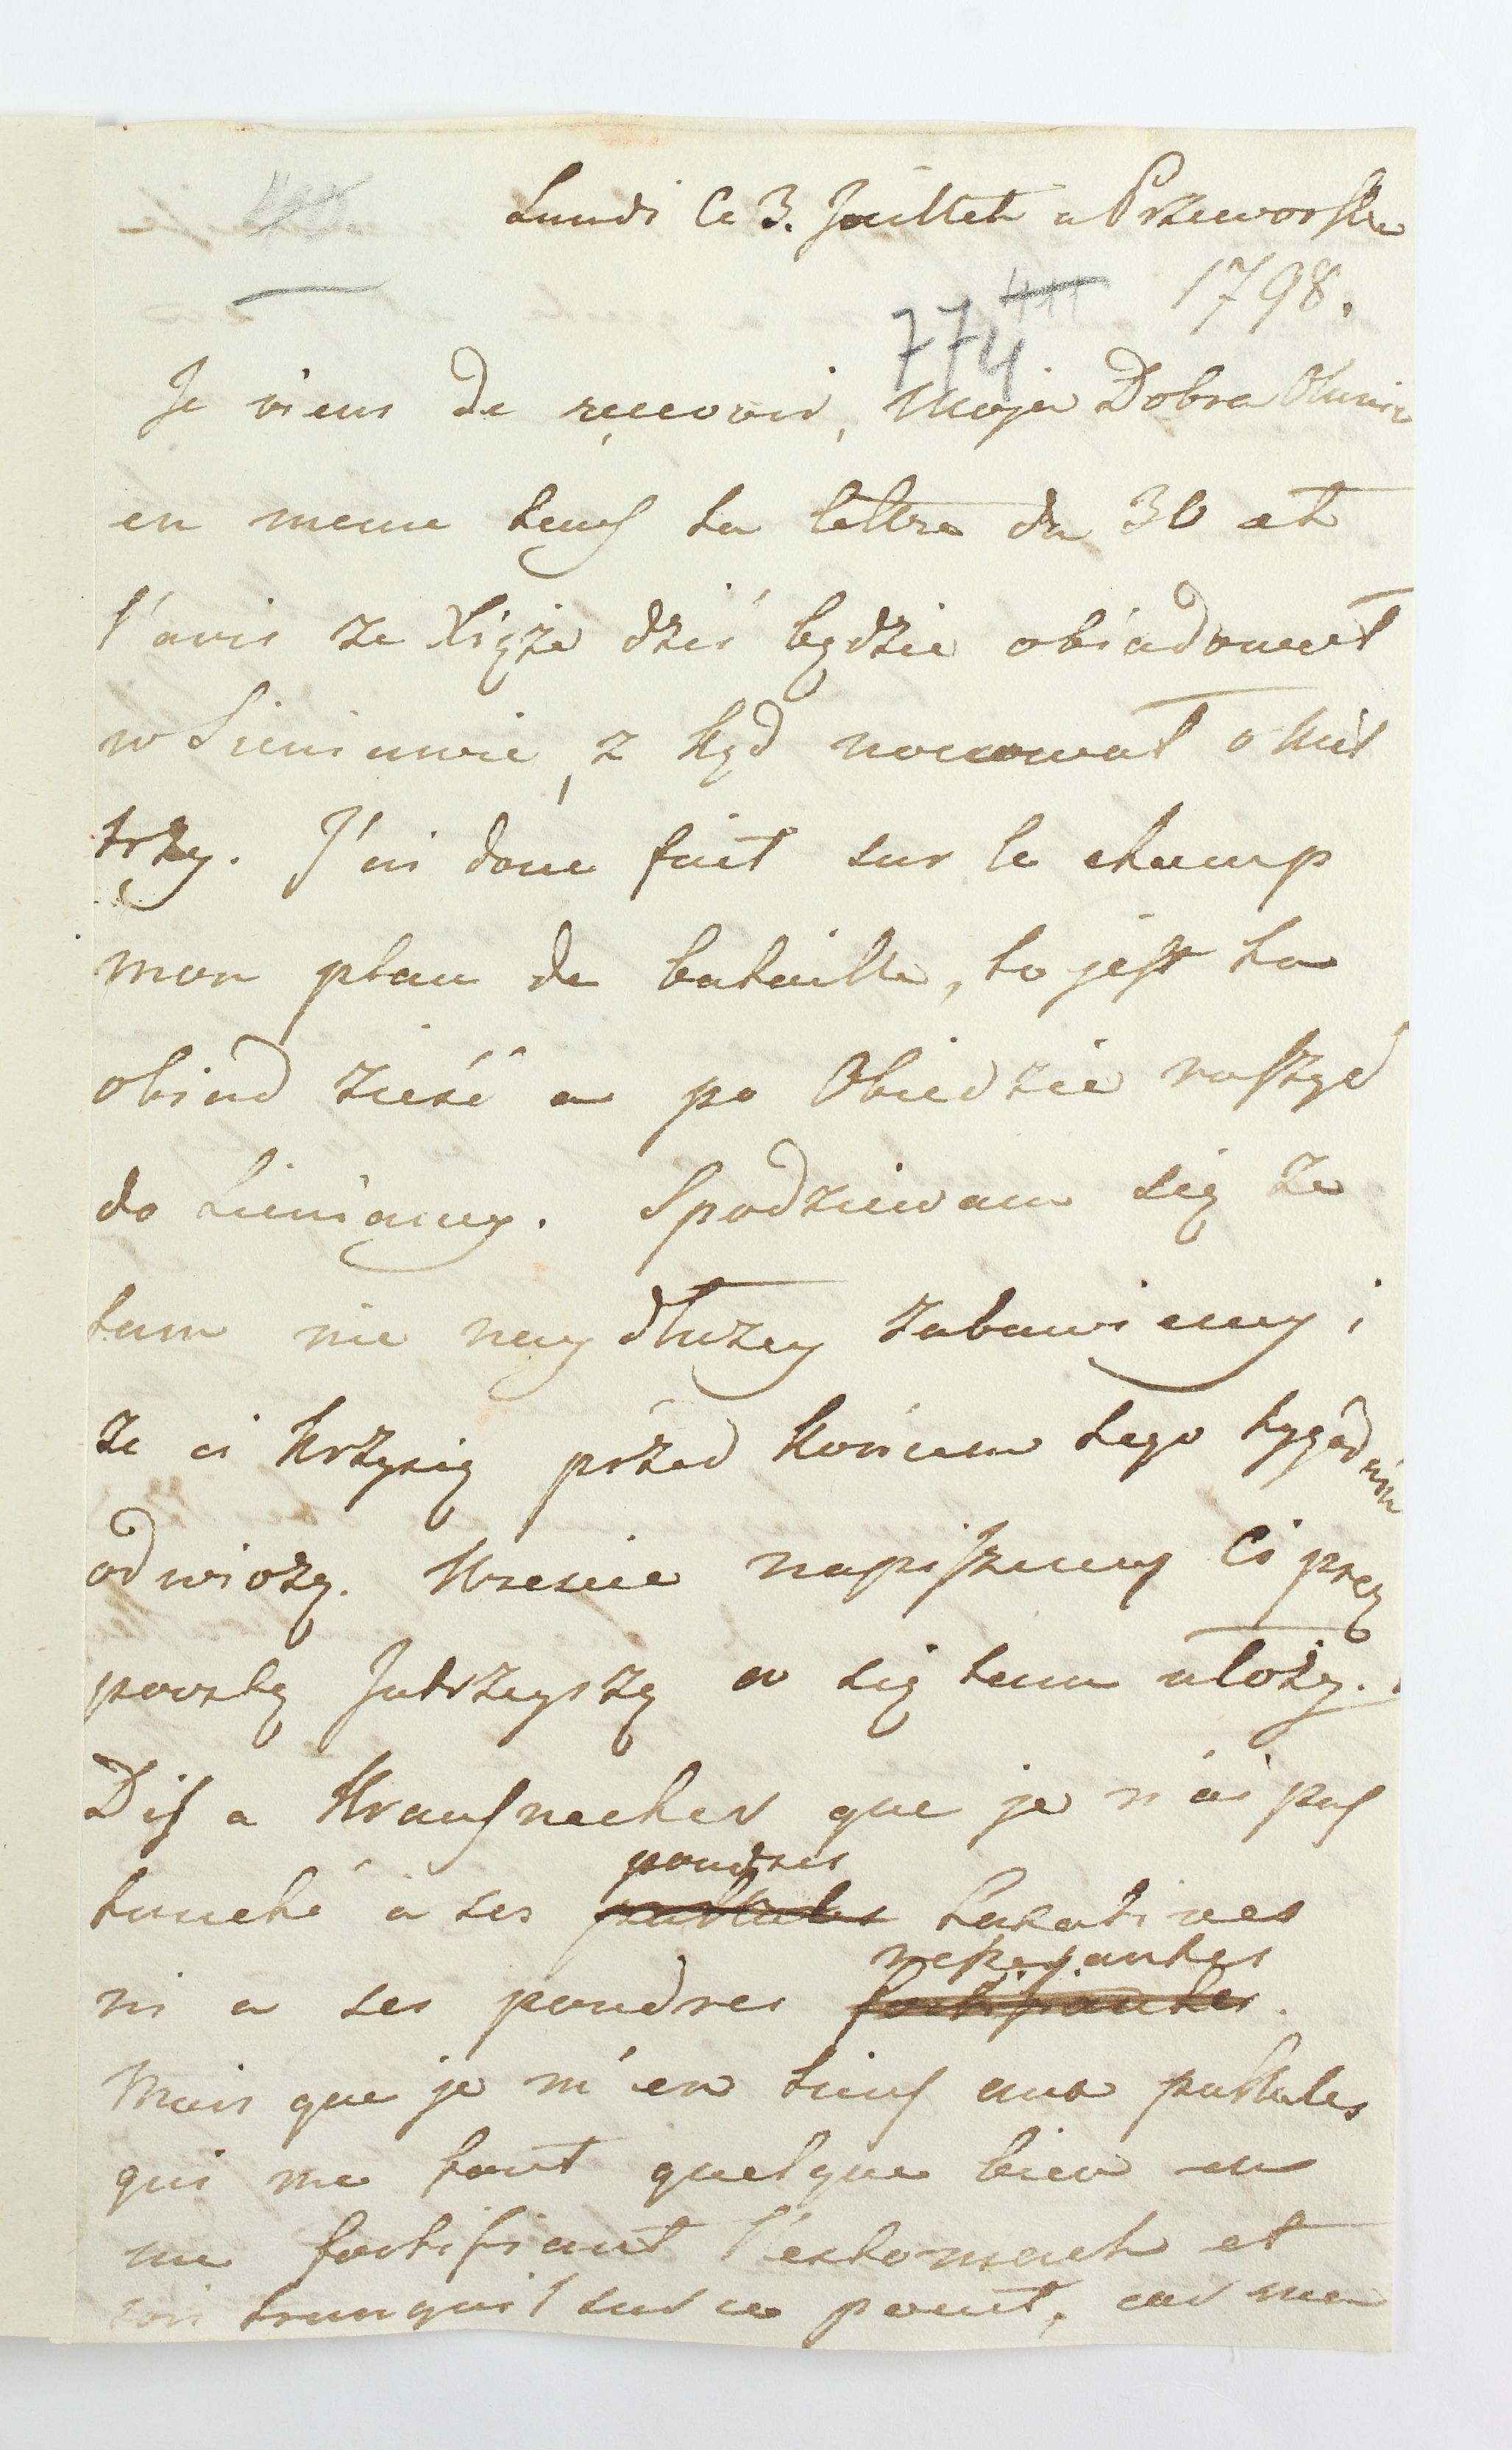 Lundi le 3. Juillet a Przeworsku
1798.
774
Je viens de recevoir, Moja Dobra
en meme tems ta lettre du 30 et
l'avis ze Xiąże dziś będzie obiadował
w Sieniawie, z kąd nocował o mil
trzy. J'ai donc fait sur le champ
mon plan de bataille, to jest tu
obiad zieść a po Obiedzie ruszyć
do Sieniawy. Spodziewam się ze
tam nie naydłuzey zabawiemy i
ze ci Krzysię przed końcem tego tygodnia
odwiozę. Wresnie napiszemy Ci przez
pocztę Jutrzeyszę co się tam ułoży.
Dis a Krausnecker que je n'ai pas
touché à ses poudres laxatives
ni a ses poudres
Mais que je m'en tiens aux pillules
qui me font quelque bien en
me fortifiant l'estomach et
sois tranquil sur ce point, car mon